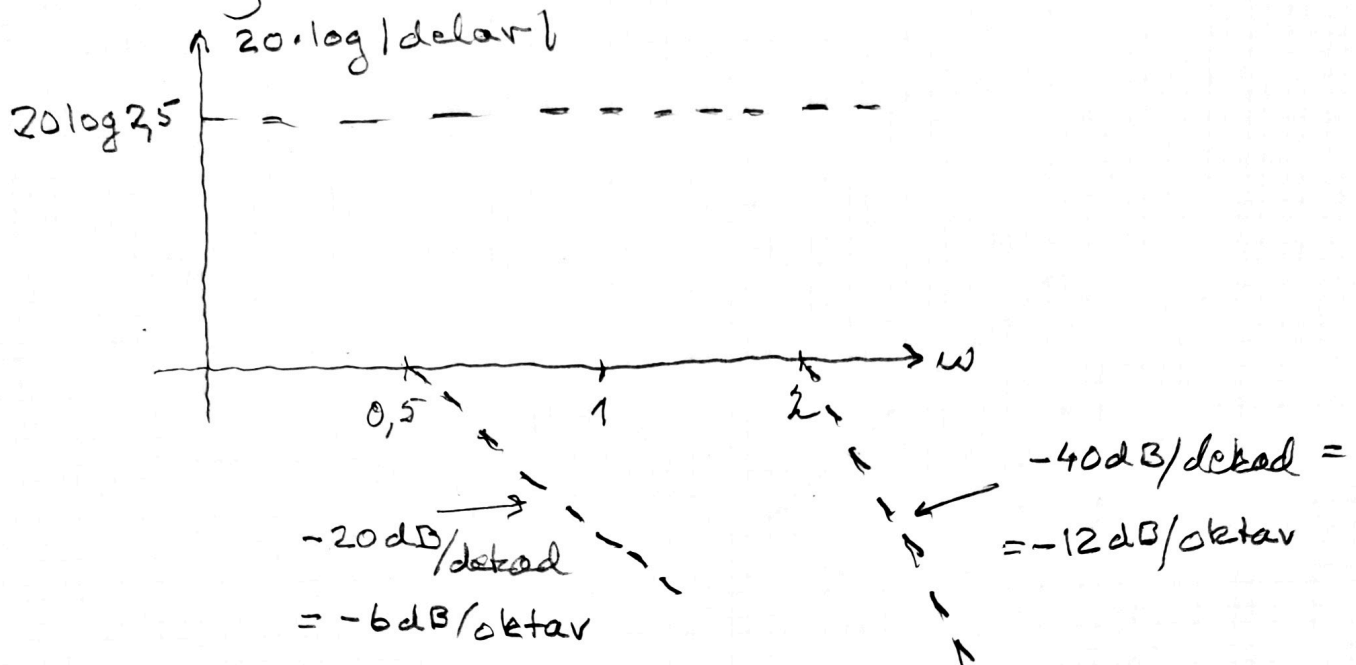 20·log|delar|
20log2,5
ω
0,5
1
2
-40dB/dekad =
=-12dB/oktav
-20dB/dekad
= -6dB/oktav